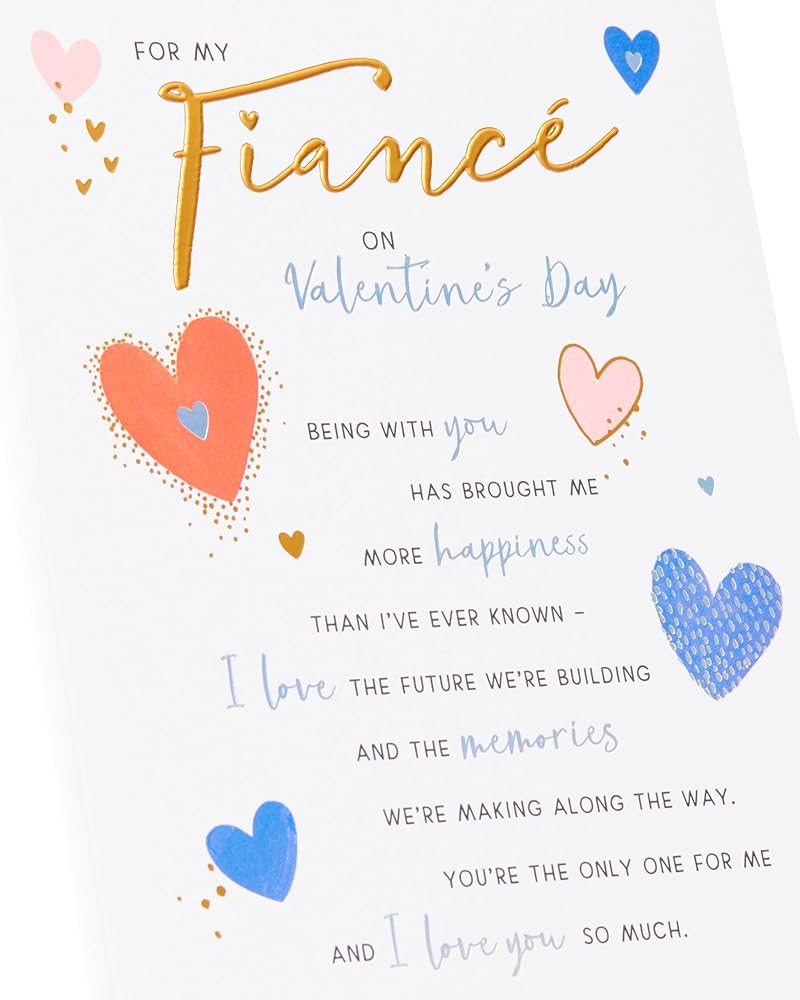 FOR MY
Fiancé
ON
Valentine's Day
BEING WITH you
HAS BROUGHT ME
MORE happiness
THAN I'VE EVER KNOWN –
I love THE FUTURE WE'RE BUILDING
AND THE memories
WE'RE MAKING ALONG THE WAY.
YOU'RE THE ONLY ONE FOR ME
AND I love you SO MUCH.